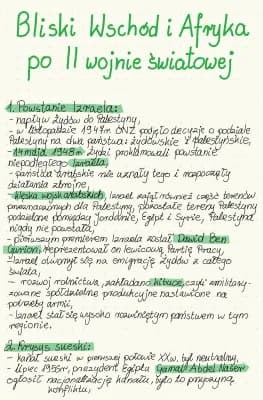 Bliski Wschód i Afryka
po II wojnie światowej
1. Powstanie Izraela:
- napływ Żydów do Palestyny,
- w listopadzie 1947r. ONZ podjęło decyzję o podziale
Palestyny na dwa państwa: żydowskie i palestyńskie,
- 14 maja 1948r. Żydzi proklamowali powstanie
niepodległego Izraela,
- państwa arabskie nie uznały tego i rozpoczęły
działania zbrojne,
- klęska wojsk arabskich, Izrael zajął również część terenów
przeznaczonych dla Palestyny, pozostałe tereny Palestyny
podzielone pomiędzy Jordanię, Egipt i Syrię, Palestyna
nigdy nie powstała,
- pierwszym premierem Izraela został Dawid Ben
Gurion, reprezentował on lewicową Partię Pracy,
- Izrael otworzył się na emigrację Żydów z całego
świata,
- rozwój rolnictwa, zakładano kibuce, czyli zmilitary-
zowane spółdzielnie produkcyjne nastawione na
potrzeby armii,
- Izrael stał się wysoko rozwiniętym państwem w tym
regionie.
2. Kryzys sueski:
- kanał sueski w pierwszej połowie XXw. był neutralny,
- lipiec 1956r., prezydent Egiptu Gamal Abdel Naser
ogłosił nacjonalizację kanału, było to przyczyną
konfliktu,